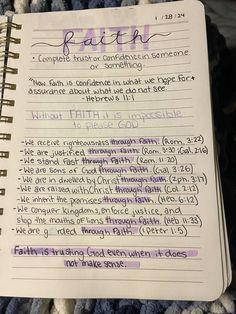 1/28/24
FAITH
faith
• Complete trust or confidence in someone
or something.
"Now faith is confidence in what we hope for +
assurance about what we do not see.
-Hebrews 11:1
Without FAITH it is impossible
to please GOD!
-We receive righteousness through faith. (Rom. 3:22)
-We are justified through faith. (Rom. 3:30, Gal. 2:16)
-We stand fast through faith. (Rom. 11:20)
-We are sons of God through faith. (Gal. 3:26)
-We are in dwelled by Christ through faith. (Eph. 3:17)
-We are raised with Christ through faith. (Col. 2:12)
-We inherit the promises through faith. (Heb. 6:12)
-We conquer kingdoms, enforce justice, and
stop the mouths of lions through faith. (Heb. 11:33)
-We are guarded through faith. (1 Peter 1:5)
Faith is trusting God even when it does
not make sense.